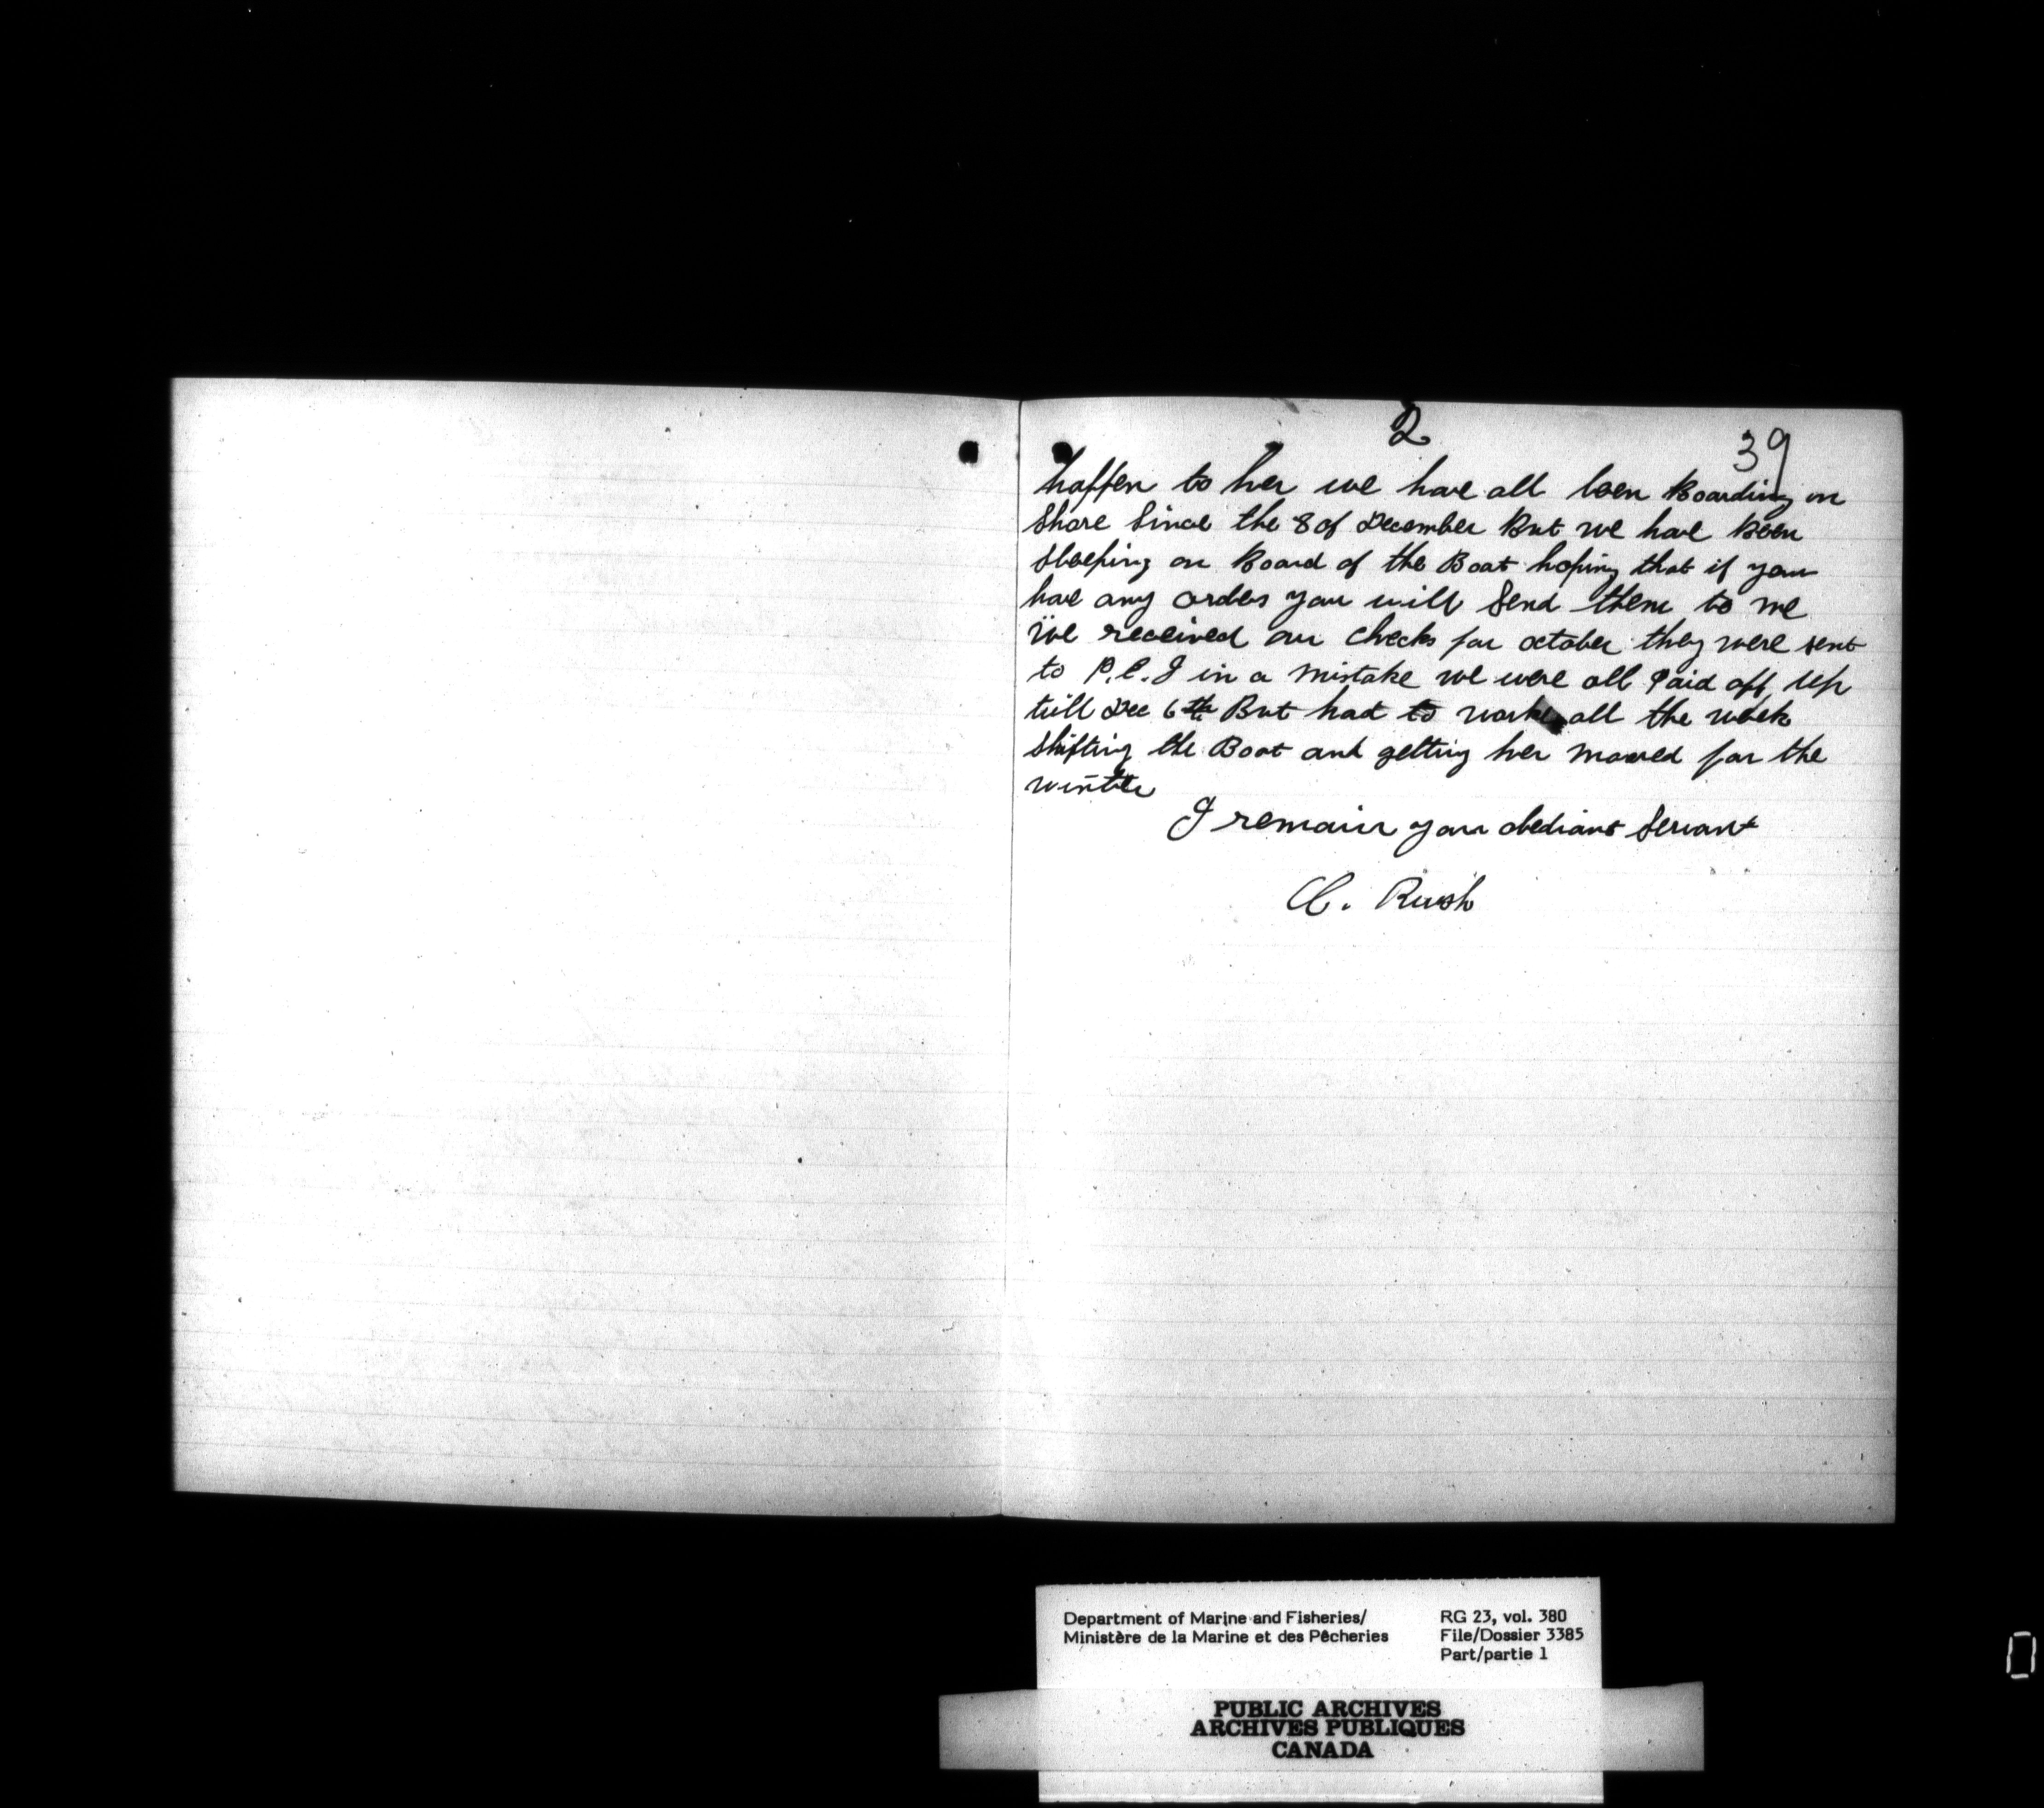 2
39
haffen to her we have all been Boarding on
Shore Since the 8 of December But we have Been
Sleeping on Board of the Boat hoping that if you
have any orders you will Send them to me
We received our Checks for october they were sent
to P.E.I in a mistake we were all Paid off up
till Dec 6th But had to work all the week
Shifting the Boat and getting her moored for the
winter
I remain your obediant Servant
C. Rush
Department of Marine and Fisheries/
Ministère de la Marine et des Pêcheries
RG 23, vol. 380
File/Dossier 3385
Part/partie 1
PUBLIC ARCHIVES
ARCHIVES PUBLIQUES
CANADA